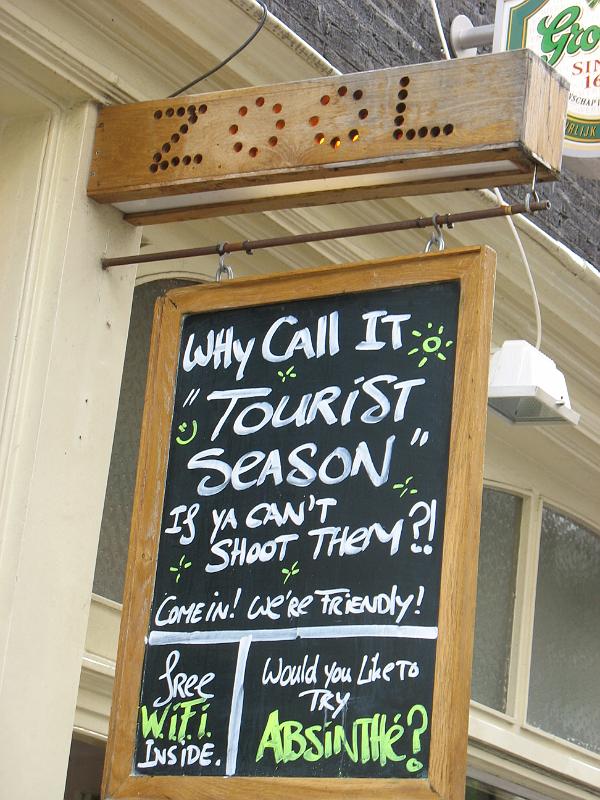 ZOOL
Gro
SIN
16
NSCHAP
RLIJK
WHY CALL IT
"TOURIST
SEASON"
If YA CAN'T
SHOOT THEM?!
COME IN! WE'RE FRIENDLY!
free
W.i.F.i.
INSIDE.
Would you Like To
TRY
ABSiNTHé?